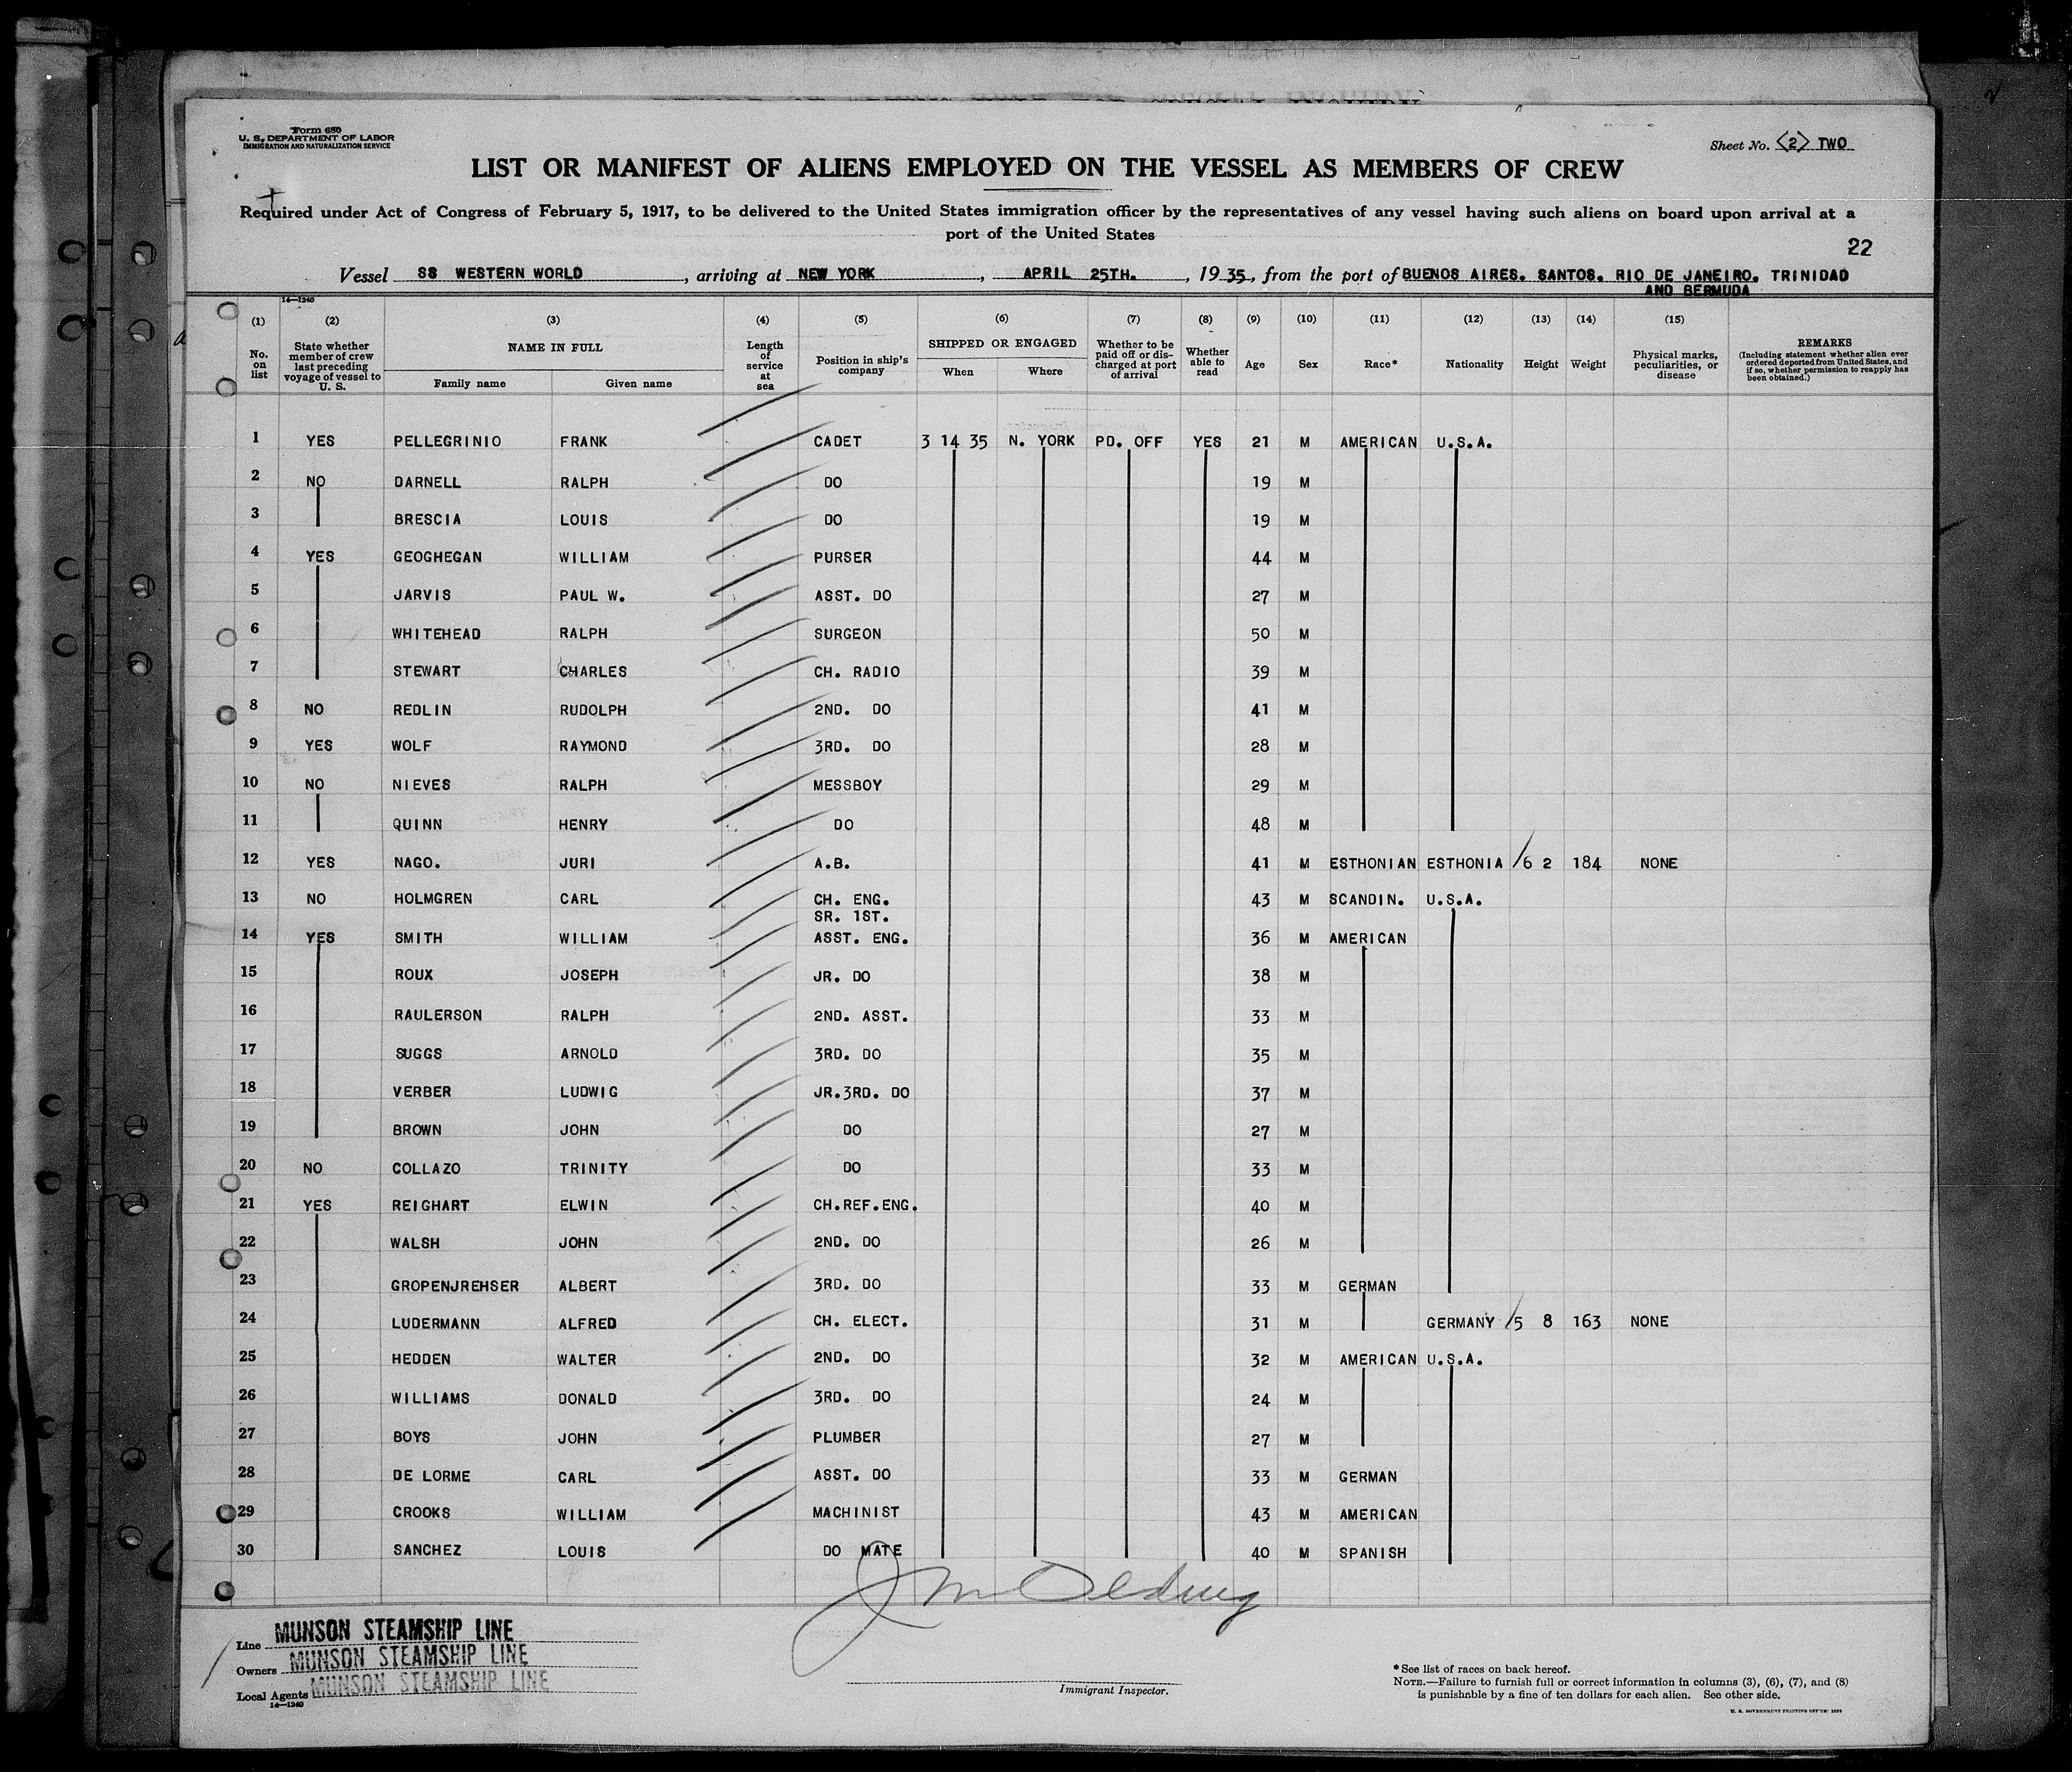 Form 680
U. S. DEPARTMENT OF LABOR
IMMIGRATION AND NATURALIZATION SERVICE
Sheet No. (2) TWO
LIST OR MANIFEST OF ALIENS EMPLOYED ON THE VESSEL AS MEMBERS OF CREW
Required under Act of Congress of February 5, 1917, to be delivered to the United States immigration officer by the representatives of any vessel having such aliens on board upon arrival at a
port of the United States
22
Vessel SS WESTERN WORLD, arriving at NEW YORK, APRIL 25TH., 1935, from the port of BUENOS AIRES. SANTOS. RIO DE JANEIRO. TRINIDAD
AND BERMUDA
14—1240
(1) (2) (3) (4) (5) (6) (7) (8) (9) (10) (11) (12) (13) (14) (15)
No. on list
State whether member of crew last preceding voyage of vessel to U. S.
NAME IN FULL
Family name
Given name
Length of service at sea
Position in ship's company
SHIPPED OR ENGAGED
When
Where
Whether to be paid off or discharged at port of arrival
Whether able to read
Age
Sex
Race*
Nationality
Height
Weight
Physical marks, peculiarities, or disease
REMARKS
(Including statement whether alien ever ordered deported from United States, and if so, whether permission to reapply has been obtained.)
1 YES PELLEGRINIO FRANK CADET 3 14 35 N. YORK PD. OFF YES 21 M AMERICAN U.S.A.
2 NO DARNELL RALPH DO 19 M
3 BRESCIA LOUIS DO 19 M
4 YES GEOGHEGAN WILLIAM PURSER 44 M
5 JARVIS PAUL W. ASST. DO 27 M
6 WHITEHEAD RALPH SURGEON 50 M
7 STEWART CHARLES CH. RADIO 39 M
8 NO REDLIN RUDOLPH 2ND. DO 41 M
9 YES WOLF RAYMOND 3RD. DO 28 M
10 NO NIEVES RALPH MESSBOY 29 M
11 QUINN HENRY DO 48 M
12 YES NAGO. JURI A.B. 41 M ESTHONIAN ESTHONIA 6 2 184 NONE
13 NO HOLMGREN CARL CH. ENG. 43 M SCANDIN. U.S.A.
SR. 1ST.
14 YES SMITH WILLIAM ASST. ENG. 36 M AMERICAN
15 ROUX JOSEPH JR. DO 38 M
16 RAULERSON RALPH 2ND. ASST. 33 M
17 SUGGS ARNOLD 3RD. DO 35 M
18 VERBER LUDWIG JR.3RD. DO 37 M
19 BROWN JOHN DO 27 M
20 NO COLLAZO TRINITY DO 33 M
21 YES REIGHART ELWIN CH.REF.ENG. 40 M
22 WALSH JOHN 2ND. DO 26 M
23 GROPENJREHSER ALBERT 3RD. DO 33 M GERMAN
24 LUDERMANN ALFRED CH. ELECT. 31 M GERMANY 5 8 163 NONE
25 HEDDEN WALTER 2ND. DO 32 M AMERICAN U.S.A.
26 WILLIAMS DONALD 3RD. DO 24 M
27 BOYS JOHN PLUMBER 27 M
28 DE LORME CARL ASST. DO 33 M GERMAN
29 CROOKS WILLIAM MACHINIST 43 M AMERICAN
30 SANCHEZ LOUIS DO MATE 40 M SPANISH
Line MUNSON STEAMSHIP LINE
Owners MUNSON STEAMSHIP LINE
Local Agents MUNSON STEAMSHIP LINE
14—1240
Immigrant Inspector.
*See list of races on back hereof.
NOTE.—Failure to furnish full or correct information in columns (3), (6), (7), and (8)
is punishable by a fine of ten dollars for each alien. See other side.